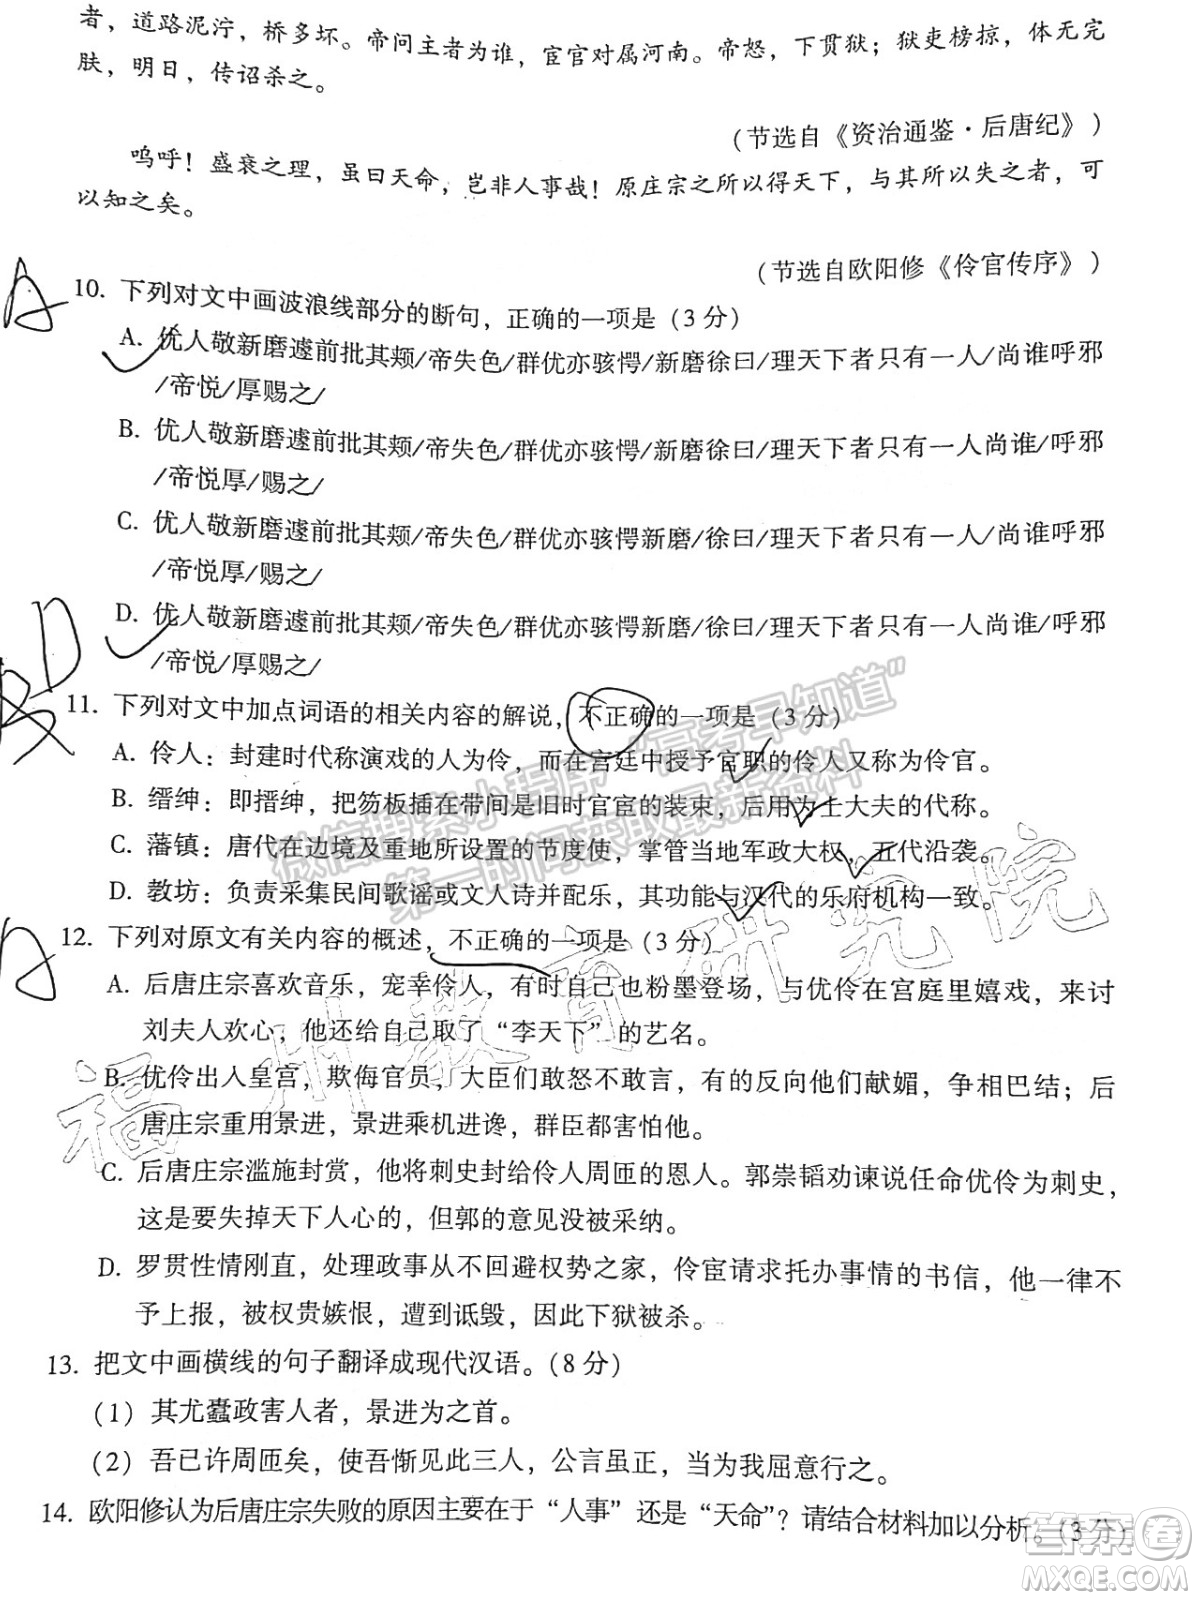 者，道路泥泞，桥多坏。帝问主者为谁，宦官对属河南。帝怒，下贯狱；狱吏榜掠，体无完
肤，明日，传诏杀之。
（节选自《资治通鉴·后唐纪》）
呜呼！盛衰之理，虽曰天命，岂非人事哉！原庄宗之所以得天下，与其所以失之者，可
以知之矣。
（节选自欧阳修《伶官传序》）
A
10. 下列对文中画波浪线部分的断句，正确的一项是（3 分）
A. 优人敬新磨遽前批其颊/帝失色/群优亦骇愕/新磨徐曰/理天下者只有一人/尚谁呼邪
/帝悦/厚赐之/
B. 优人敬新磨遽前批其颊/帝失色/群优亦骇愕/新磨徐曰/理天下者只有一人尚谁/呼邪
/帝悦厚/赐之/
C. 优人敬新磨遽前批其颊/帝失色/群优亦骇愕新磨/徐曰/理天下者只有一人/尚谁呼邪
/帝悦厚/赐之/
D. 优人敬新磨遽前批其颊/帝失色/群优亦骇愕新磨/徐曰/理天下者只有一人尚谁/呼邪
/帝悦/厚赐之/
D
11. 下列对文中加点词语的相关内容的解说，不正确的一项是（3 分）
A. 伶人：封建时代称演戏的人为伶，而在宫廷中授予官职的伶人又称伶官。
B. 缙绅：即搢绅，把笏板插在带间是旧时官宦的装束，后用为士大夫的代称。
C. 藩镇：唐代在边境及重地所设置的节度使，掌管当地军政大权，五代沿袭。
D. 教坊：负责采集民间歌谣或文人诗并配乐，其功能与汉代的乐府机构一致。
A
12. 下列对原文有关内容的概述，不正确的一项是（3 分）
A. 后唐庄宗喜欢音乐，宠幸伶人，有时自己也粉墨登场，与优伶在宫庭里嬉戏，来讨
刘夫人欢心；他还给自己取了“李天下”的艺名。
B. 优伶出入皇宫，欺侮官员，大臣们敢怒不敢言，有的反向他们献媚，争相巴结；后
唐庄宗重用景进，景进乘机进谗，群臣都害怕他。
C. 后唐庄宗滥施封赏，他将刺史封给伶人周匝的恩人。郭崇韬劝谏说任命优伶为刺史，
这是要失掉天下人心的，但郭的意见没被采纳。
D. 罗贯性情刚直，处理政事从不回避权势之家，伶宦请求托办事情的书信，他一律不
予上报，被权贵嫉恨，遭到诋毁，因此下狱被杀。
13. 把文中画横线的句子翻译成现代汉语。（8 分）
（1）其尤蠹政害人者，景进为之首。
（2）吾已许周匝矣，使吾惭见此三人，公言虽正，当为我屈意行之。
14. 欧阳修认为后唐庄宗失败的原因主要在于“人事”还是“天命”？请结合材料加以分析。（3 分）
微信搜索小程序“高考早知道”
第一时间获取最新资料
福州教育研究院
答案卷
MXQE.COM